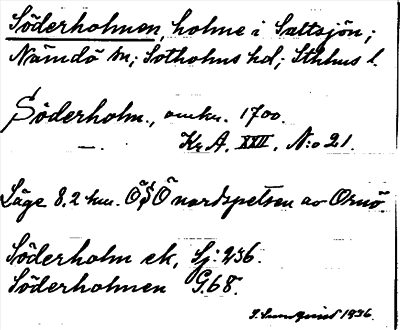 Söderholmen, holme i Saltsjön;
Nämdö sn; Sotholms hd; Sthlms l.
Söderholm., omkr. 1700.
—. Kr A. XXII, N:o 21.
Läge 8.2 km. ÖSÖ nordspetsen av Ornö
Söderholm ek, Sj: 236.
Söderholmen G.68.
1936.